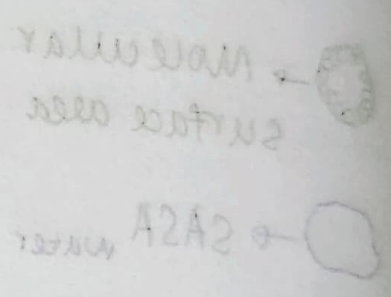 Molecular
surface area
SASA water